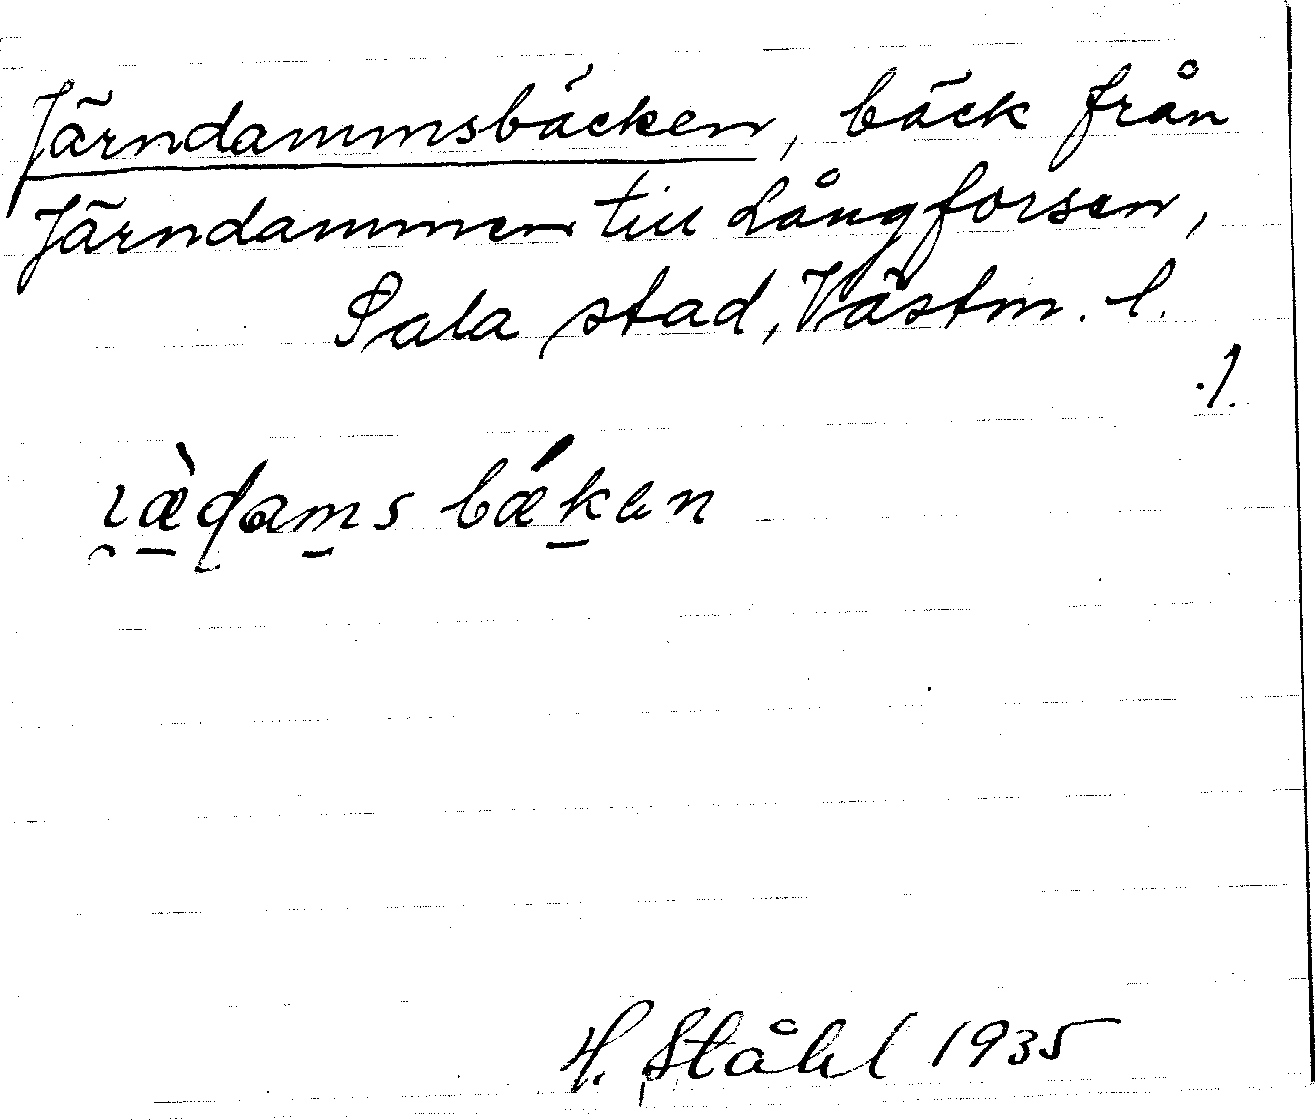 Järndammsbäcken, bäck från
Järndammen till Långforsen,
Sala stad, Västm. l.
./.
ɩ̯æ̠̀ɖam̠s bǽk̠en
H. Ståhl 1935